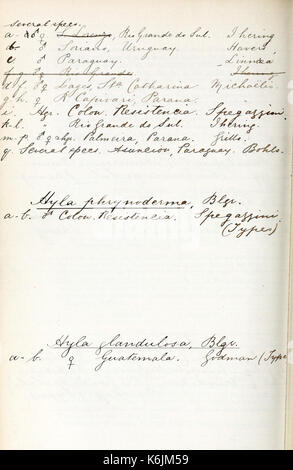 several specs.
a - ♂ ♀ S. Lorenzo, Rio Grande do Sul. Ihering
b. ♂ Soriano, Uruguay. Havers
c ♂ Paraguay. Linnæa
f. g. ♀ Rio Grande. Ihering
d f. ♂ ♀ Lages, Sta Catharina Michaelis.
g. h. ♀ R. Capivari, Parana.
i. Hgr. Colon. Resistencia. Spegazzini
k. l. Rio Grande do Sul. Ihering.
m - p. ♂ ♀ & hgr. Palmera, Parana. Grillo.
q Several specs. Asuncion, Paraguay. Bohls.
Hyla phrynoderma, Blgr.
a - b. ♂ Colon. Resistencia. Spegazzini
(Types)
Hyla glandulosa, Blgr.
a - b. ♀ Guatemala. Godman (Type
alamy
Image ID: K6JM59
www.alamy.com